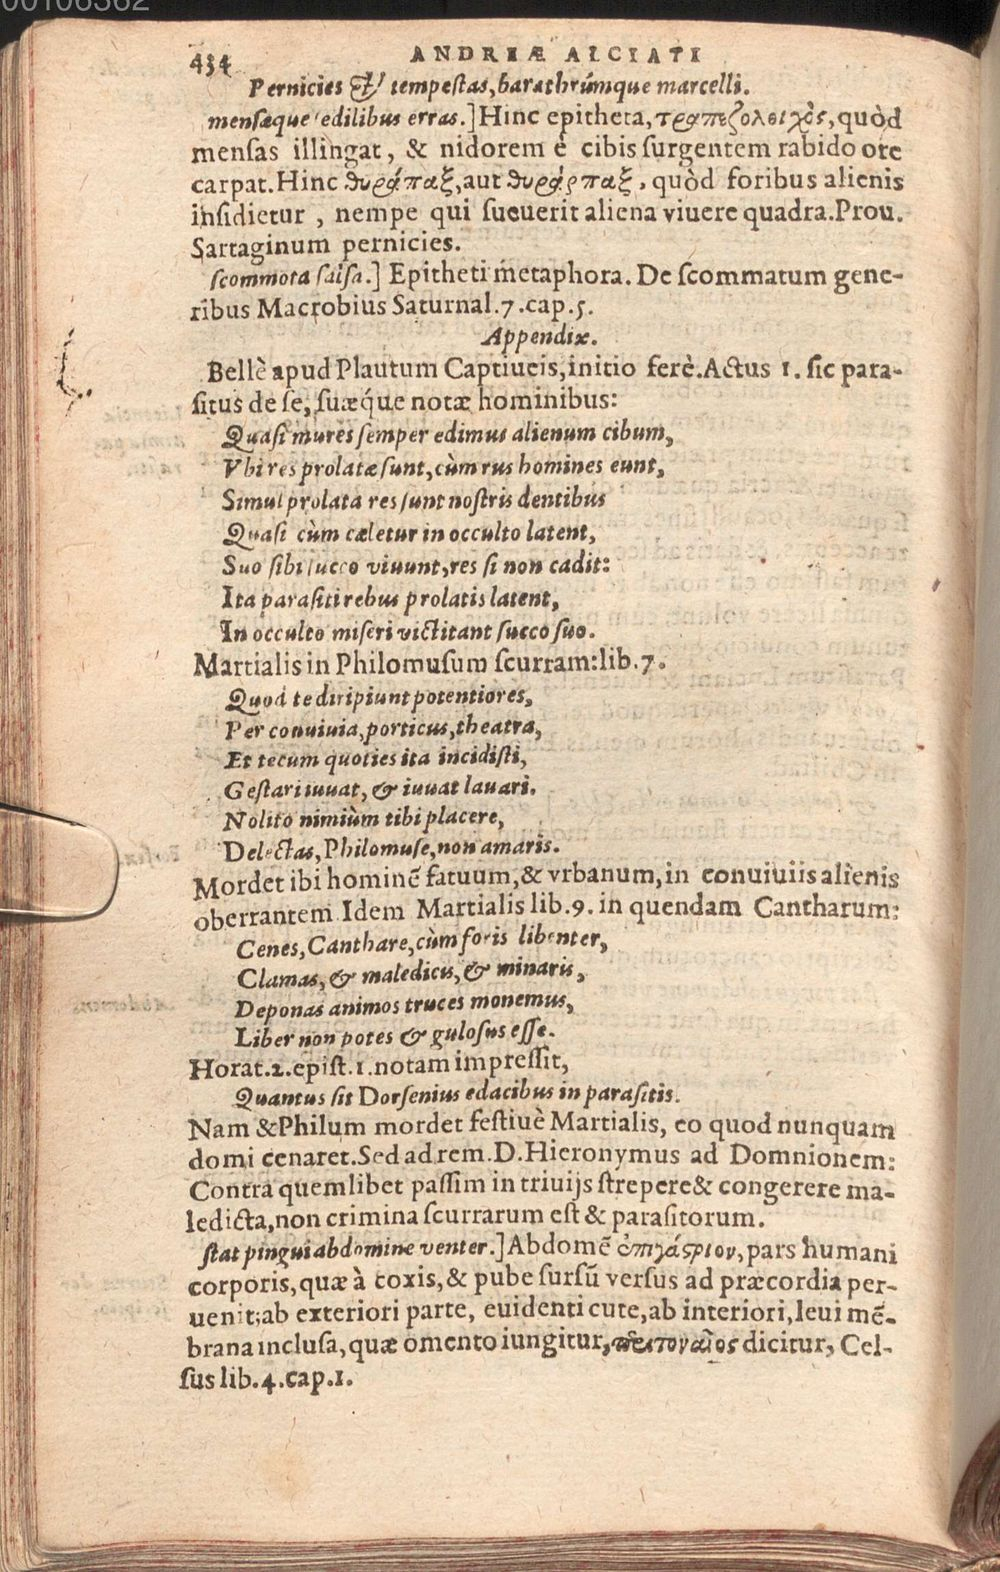 00106362
434 ANDREÆ ALCIATI
Pernicies & tempestas, barathrúmque marcelli.
mensæque edilibus erras.] Hinc epitheta, τραπεζολοιχὸς, quòd
mensas illingat, & nidorem è cibis surgentem rabido ore
carpat. Hinc θυράπαξ, aut θυράρπαξ, quòd foribus alienis
insidietur, nempe qui sueuerit aliena viuere quadra. Prou.
Sartaginum pernicies.
scommota salsa.] Epitheti metaphora. De scommatum gene-
ribus Macrobius Saturnal. 7. cap. 5.
Appendix.
Bellè apud Plautum Captiueis, initio ferè. Actus 1. sic para-
situs de se, suæq́ue notæ hominibus:
Quasi mures semper edimus alienum cibum,
Vbi res prolatæ sunt, cùm rus homines eunt,
Simul prolata res sunt nostris dentibus
Quasi cùm cæletur in occulto latent,
Suo sibi succo viuunt, res si non cadit:
Ita parasiti rebus prolatis latent,
In occulto miseri victitant succo suo.
Martialis in Philomusum scurram: lib. 7.
Quod te diripiunt potentiores,
Per conuiuia, porticus, theatra,
Et tecum quoties ita incidisti,
Gestari iuuat, & iuuat lauari.
Nolito nimiùm tibi placere,
Delectas, Philomuse, non amaris.
Mordet ibi hominē fatuum, & vrbanum, in conuiuiis alienis
oberrantem Idem Martialis lib. 9. in quendam Cantharum:
Cenes, Canthare, cùm foris libenter,
Clamas, & maledicis, & minaris,
Deponas animos truces monemus,
Liber non potes & gulosus esse.
Horat. 2. epist. 1. notam impressit,
Quantus sit Dorsenius edacibus in parasitis.
Nam & Philum mordet festiuè Martialis, eo quod nunquam
domi cenaret. Sed ad rem. D. Hieronymus ad Domnionem:
Contra quemlibet passim in triuijs strepere & congerere ma-
ledicta, non crimina scurrarum est & parasitorum.
stat pingui abdomine venter.] Abdomē ἐπιγάστριον, pars humani
corporis, quæ à coxis, & pube sursū versus ad præcordia per-
uenit; ab exteriori parte, euidenti cute, ab interiori, leui mē-
brana inclusa, quæ omento iungitur, περιτοναῖος dicitur, Cel-
sus lib. 4. cap. 1.